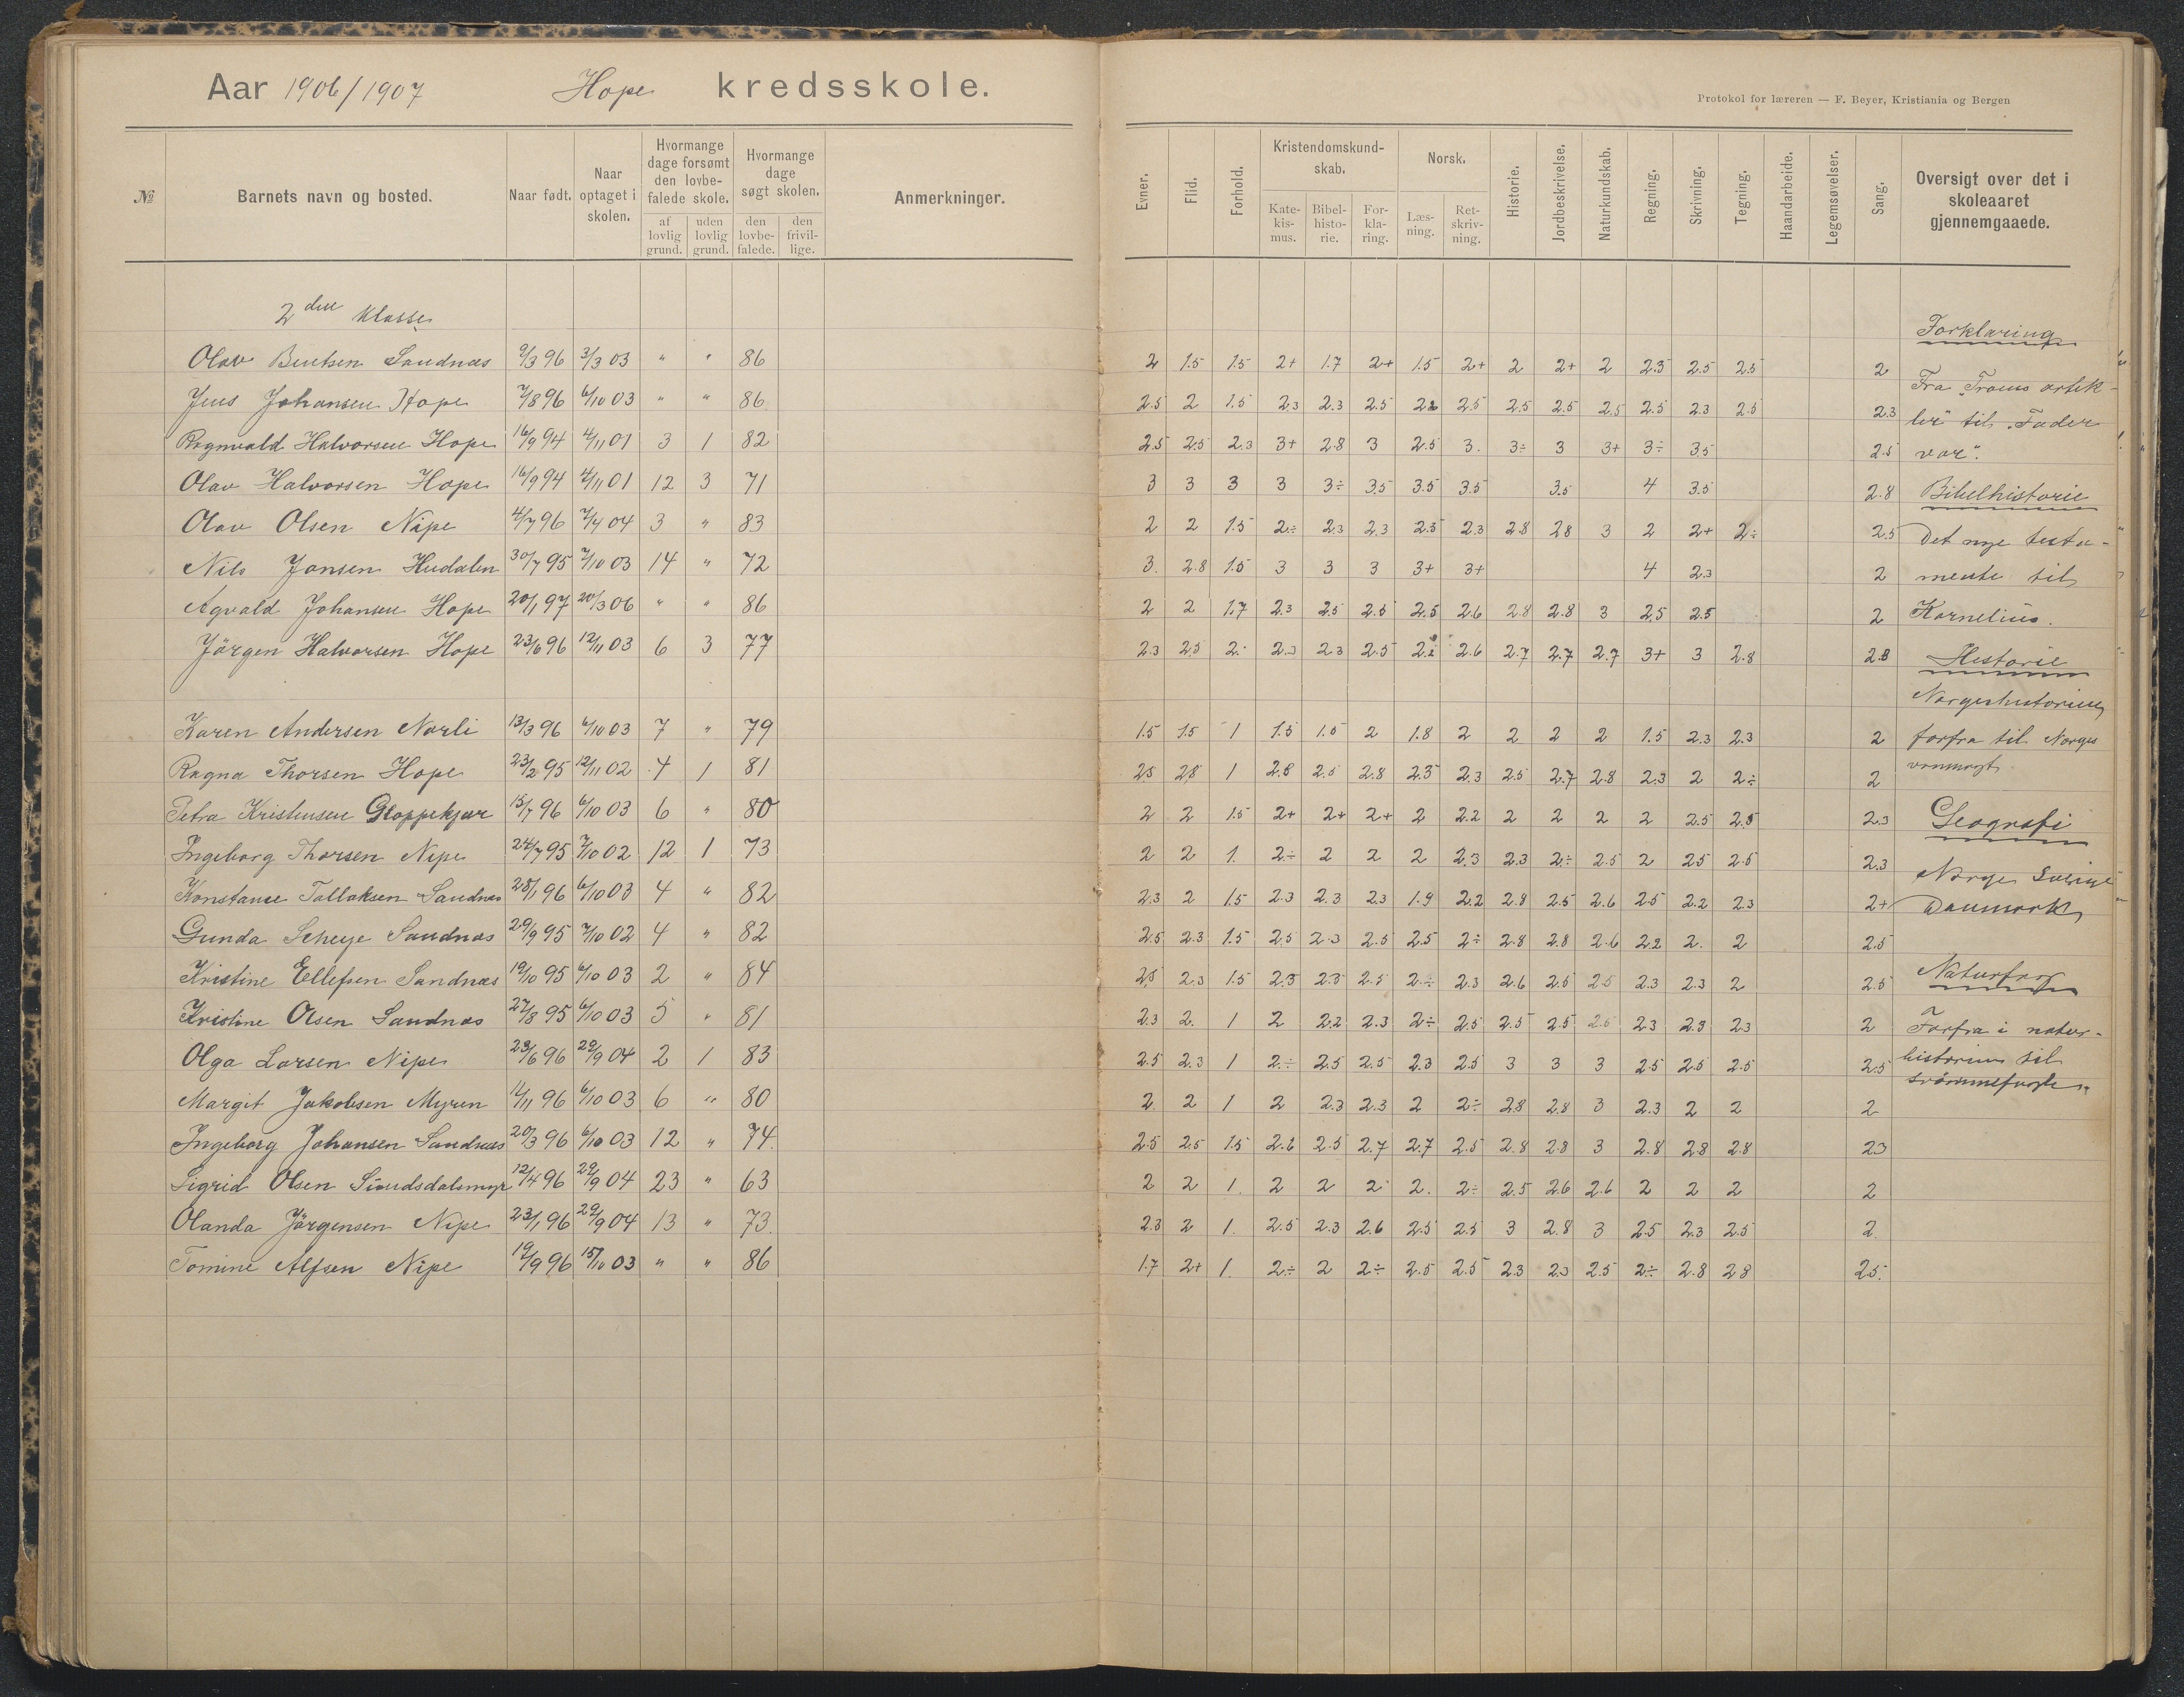 Aar 1906/1907 Hope kredsskole.
Protokol for læreren — F. Beyer, Kristiania og Bergen
№ Barnets navn og bosted. Naar født. Naar optaget i skolen. Hvormange dage forsømt den lovbefalede skole. af lovlig grund. uden lovlig grund. Hvormange dage søgt skolen. den lovbefalede. den frivillige. Anmerkninger. Evner. Flid. Forhold. Kristendomskundskab. Katekismus. Bibelhistorie. Forklaring. Norsk. Læsning. Retskrivning. Historie. Jordbeskrivelse. Naturkundskab. Regning. Skrivning. Tegning. Haandarbeide. Legemsøvelser. Sang. Oversigt over det i skoleaaret gjennemgaaede.
2den klasse
Olav Bentsen Sandnæs 9/3 96 3/3 03 " " 86 2 1.5 1.5 2+ 1.7 2+ 1.5 2+ 2 2+ 2 2.3 2.5 2.5 2
Jens Johansen Hope 7/8 96 6/10 03 " " 86 2.5 2 1.5 2.3 2.3 2.5 2.5 2.5 2.5 2.5 2.5 2.3 2.5 2.3
Ragnvald Halvorsen Hope 16/9 94 4/11 01 3 1 82 2.5 2.5 2.3 3+ 2.8 3 2.5 3. 3÷ 3 3+ 3÷ 3.5 2.5
Olav Halvorsen Hope 16/9 94 4/11 01 12 3 71 3 3 3 3 3÷ 3.5 3.5 3.5 3.5 4 3.5 2.8
Olav Olsen Nipe 4/7 96 7/4 04 3 " 83 2 2 1.5 2÷ 2.3 2.3 2.5 2.3 2.8 2.8 3 2 2+ 2÷ 2.5
Nils Jansen Hudalen 30/7 95 7/10 03 14 " 72 3. 2.8 1.5 3 3 3 3+ 3+ 4 2.3 2
Agvald Johansen Hope 20/1 97 20/3 06 " " 86 2 2 1.7 2.3 2.5 2.5 2.5 2.6 2.8 2.8 3 2.5 2.5 2
Jörgen Halvorsen Hope 23/6 96 12/11 03 6 3 77 2.3 2.5 2. 2.3 2.3 2.5 2.6 2.7 2.7 2.7 3+ 3 2.8 2.8
Karen Andersen Narli 13/3 96 6/10 03 7 " 79 1.5 1.5 1 1.5 1.5 2 1.8 2 2 2 2 1.5 2.3 2.3 2
Ragna Thorsen Hope 23/2 95 12/11 02 4 1 81 2.5 2.8 1 2.8 2.5 2.8 2.5 2.3 2.5 2.7 2.8 2.3 2 2÷ 2
Petra Kristensen Gloppekjær 15/7 96 6/10 03 6 " 80 2 2 1.5 2+ 2+ 2+ 2 2.2 2 2 2 2 2.5 2.5 2.3
Ingeborg Thorsen Nipe 24/7 95 7/10 02 12 1 73 2 2 1. 2÷ 2 2 2 2.3 2.3 2÷ 2.5 2 2.5 2.5 2.3
Konstance Tallaksen Sandnæs 28/1 96 6/10 03 4 " 82 2.3 2 1.5 2.3 2.3 2.3 1.9 2.2 2.8 2.5 2.6 2.5 2.2 2.3 2+
Gunda Scheye Sandnæs 29/9 95 7/10 02 4 " 82 2.5 2.3 1.5 2.5 2.3 2.5 2.5 2÷ 2.8 2.8 2.6 2.2 2. 2 2.5
Kristine Ellefsen Sandnæs 19/10 95 6/10 03 2 " 84 2.5 2.3 1.5 2.3 2.3 2.5 2÷ 2.3 2.6 2.5 2.5 2.3 2.3 2 2.5
Kristine Olsen Sandnæs 27/8 95 6/10 03 5 " 81 2.3 2. 1 2 2.2 2.3 2÷ 2.5 2.5 2.5 2.5 2.3 2.3 2.3 2
Olga Larsen Nipe 23/6 96 29/9 04 2 1 83 2.5 2.3 1 2÷ 2.5 2.5 2.3 2.5 3 3 3 2.5 2.5 2.5 2.5
Margit Jakobsen Myren 11/11 96 6/10 03 6 " 80 2. 2 1 2 2.3 2.3 2 2÷ 2.8 2.8 3 2.3 2 2 2
Ingeborg Johansen Sandnæs 20/3 96 6/10 03 12 " 74 2.5 2.5 1.5 2.6 2.5 2.7 2.7 2.5 2.8 2.8 3 2.8 2.8 2.8 2.3
Sigrid Olsen 12/4 96 29/9 04 23 " 63 2 2 1. 2 2 2 2. 2÷ 2.5 2.6 2.6 2 2 2 2
Olanda Jörgensen Nipe 23/1 96 29/9 04 13 " 73 2.3 2 1. 2.5 2.3 2.6 2.5 2.5 3 2.8 3 2.5 2.3 2.5 2.
Tomine Alfsen Nipe 19/9 96 15/10 03 " " 86 1.7 2+ 1. 2÷ 2 2÷ 2.5 2.5 2.3 2.3 2.5 2÷ 2.8 2.8 2.5
Forklaring
Fra "Troens artik-
ler" til "Fader
vor".
Bibelhistorie
Det nye testa-
mente til
Kornelius.
Historie
Norgeshistorien
forfra til Norges
vanmagt.
Geografi
Norge Sverige
Danmark
Naturfag
Forfra i natur-
historien til
svømmefugle